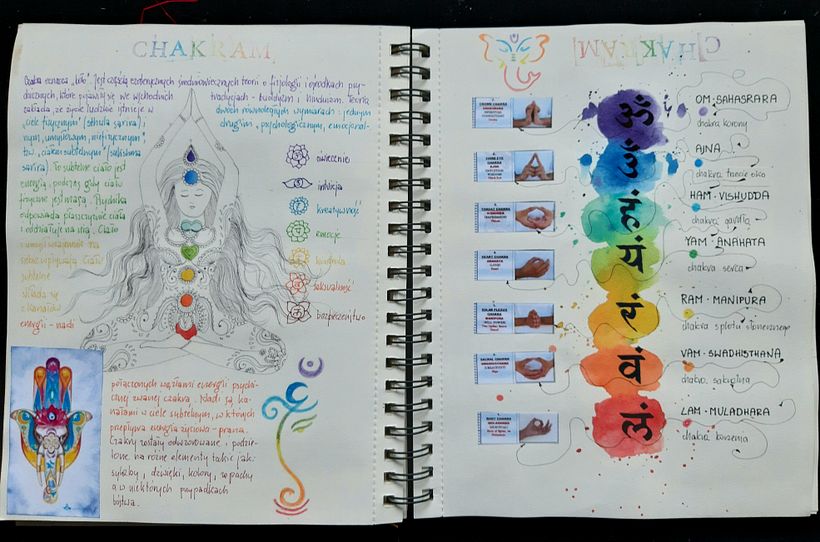 CHAKRAM
Czakra oznacza „koło”. Jest częścią ezoterycznych średniowiecznych teorii o fizjologii i ośrodkach psy-
chicznych, które pojawiły się we wschodnich tradycjach - buddyzm i hinduizm. Teoria
zakłada, że życie ludzkie istnieje w dwóch równoległych wymiarach : jednym
„ciele fizycznym” (sthula sarira) i drugim, psychologicznym, emocjonal-
nym, umysłowym, niefizycznym”
tzw. „ciałem subtelnym” (sukshma
sarira). To subtelne ciało jest
energią, podczas gdy ciało
fizyczne jest masą. Psychika
odpowada płaszczyźnie ciała
i oddziałuje na nią. Ciało
i umysł wzajemnie na
siebie wpływają. Ciało
subtelne
składa się
z kanałów
energii - nadi
oświecenie
intuicja
kreatywność
emocje
kontrola
seksualność
bezpieczeństwo
połączonych węzłami energii psychi-
cznej zwanej czakrą. Nadi są ka-
nałami w ciele subtelnym, w których
przepływa energia życiowa - prana.
Czakry zostały odwzorowane i podzie-
lone na różne elementy takie jak:
symbole, dźwięki, kolory, zapachy
a w niektórych przypadkach
bóstwa.
CHAKRAM
CROWN CHAKRA
SAHASRARA
THIRD EYE CHAKRA
AJNA
THROAT CHAKRA
HEART CHAKRA
ANAHATA
SOLAR PLEXUS
CHAKRA
MANIPURA
SACRAL CHAKRA
ROOT CHAKRA
MULADHARA
ॐ
ॐ
हं
यं
रं
वं
लं
OM·SAHASRARA
chakra korony
AJNA
chakra trzecie oko
HAM·VISHUDDA
chakra gardła
YAM·ANAHATA
chakra serca
RAM·MANIPURA
chakra splotu słonecznego
VAM·SWADHISTHANA
chakra sakralna
LAM·MULADHARA
chakra korzenia